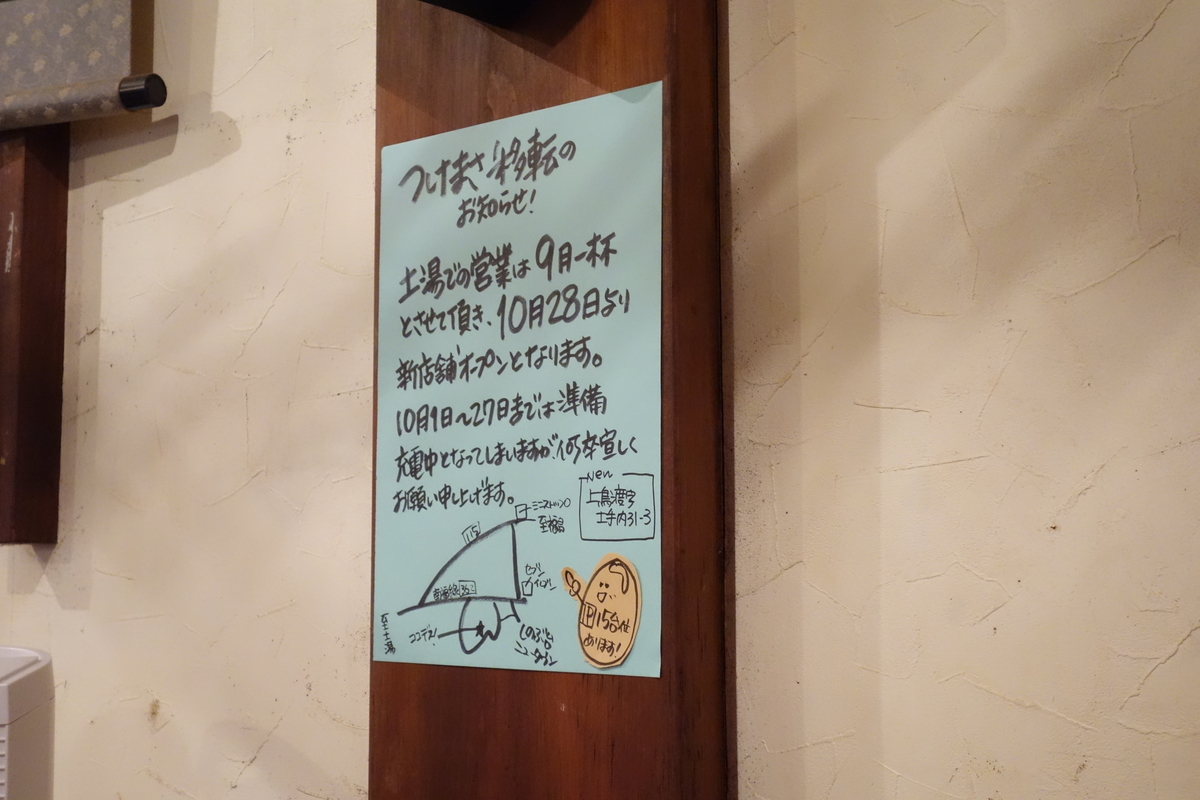 つけまさ移転の
お知らせ!
土湯での営業は9月一杯
とさせて頂き、10月28日より
新店舗オープンとなります。
10月1日〜27日までは準備
充電中となってしまいますが、何卒宜しく
お願い申し上げます。
New
上鳥渡字
土手内31-3
ミニストップ
至福島
115
セブン
イレブン
至土湯
ココデス!
しのぶ台
ニュータウン
P15台位
あります!